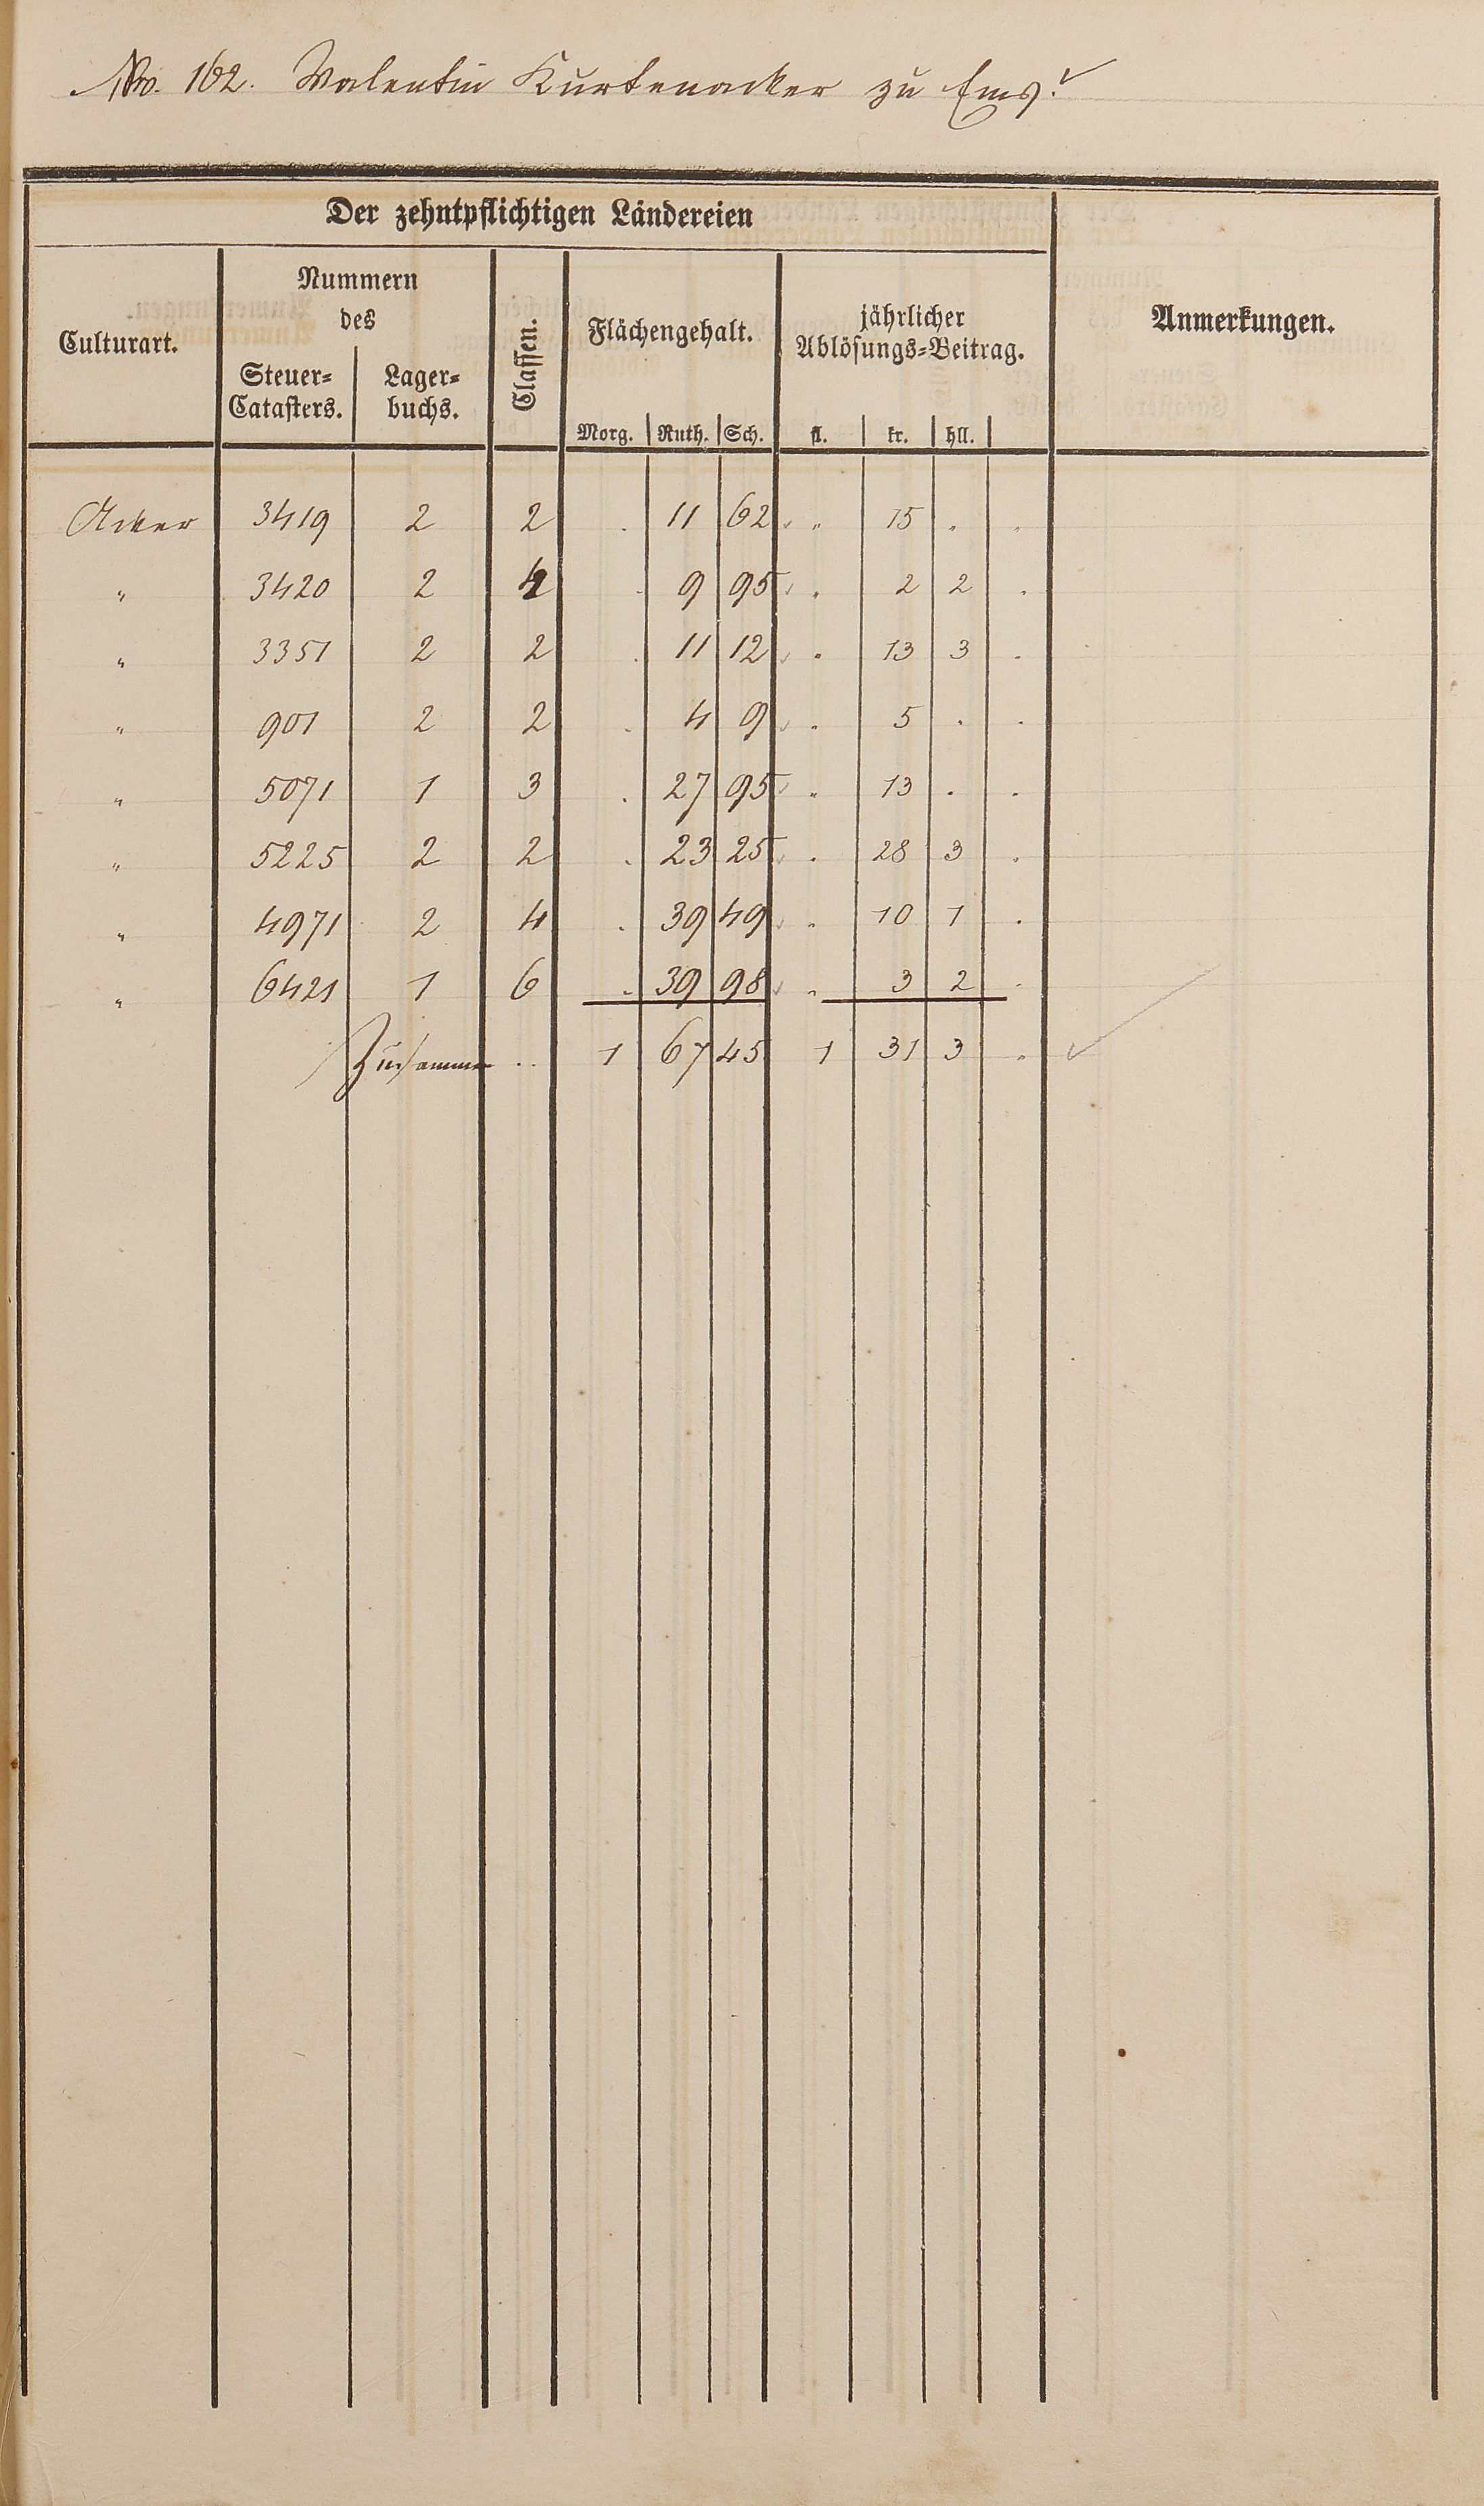 No. 162. Valentin Kurtenacker zu Ems.
Der zehntpflichtigen Ländereien
Culturart. Nummern des Steuer=Catasters. Lager=buchs. Classen. Flächengehalt. Morg. Ruth. Sch. jährlicher Ablösungs=Beitrag. fl. kr. hll. Anmerkungen.
Acker 3419 2 2 . 11 62 „ 15 . .
„ 3420 2 4 . 9 95 . 2 2 .
„ 3351 2 2 . 11 12 „ 13 3 .
„ 901 2 2 . 4 9 . 5 . .
„ 5071 1 3 . 27 95 „ 13 . .
„ 5225 2 2 . 23 25 . 28 3 .
„ 4971 2 4 . 39 49 „ 10 1 .
„ 6421 1 6 . 39 98 „ 3 2 .
Zusammen .. 1 67 45 1 31 3 .